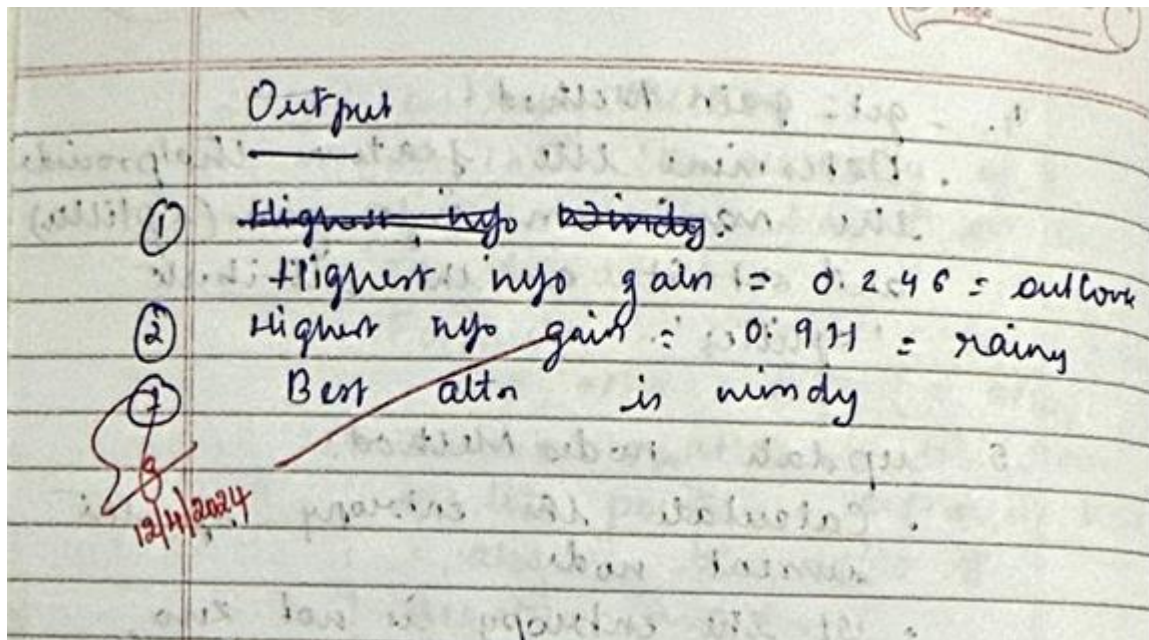 Output
① Highest info windy.
Highest info gain = 0.246 = outlook
② Highest info gain = 0.971 = rainy
Best attr is windy
12/4/2024